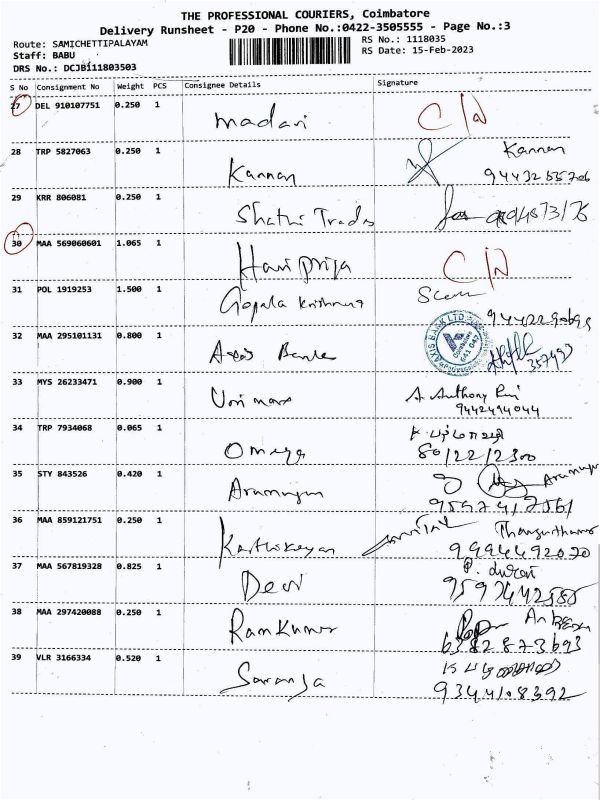 THE PROFESSIONAL COURIERS, Coimbatore
Delivery Runsheet - P20 - Phone No.:0422-3505555 - Page No.:3
Route: SAMICHETTIPALAYAM
RS No.: 1118035
Staff: BABU
RS Date: 15-Feb-2023
DRS No.: DCJB111803503
S No Consignment No Weight PCS Consignee Details Signature
27 DEL 910107751 0.250 1 Madavi C/N
28 TRP 5827063 0.250 1 Kannan Kannan
29 KRR 806081 0.250 1 Shathi Trades
30 MAA 569060601 1.065 1 Haripriya C/N
31 POL 1919253 1.500 1 Gopala Krishnan
32 MAA 295101131 0.800 1 Bank
AXIS BANK LTD
Coimbatore
641 047
357493
33 MYS 26233471 0.900 1 A Anthony
9442494044
34 TRP 7934068 0.065 1 Omega
80/22/2300
35 STY 843526 0.420 1 Arumugam Arumugam
9597417561
36 MAA 859121751 0.250 1 Karthikeyan
9994492020
37 MAA 567819328 0.825 1 Devi
9597442585
38 MAA 297420088 0.250 1 RamKumar
6382873693
39 VLR 3166334 0.520 1 Saranya
9344108392